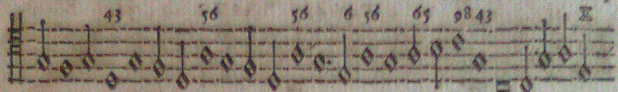 43 56 56 6 56 65 98 43 X